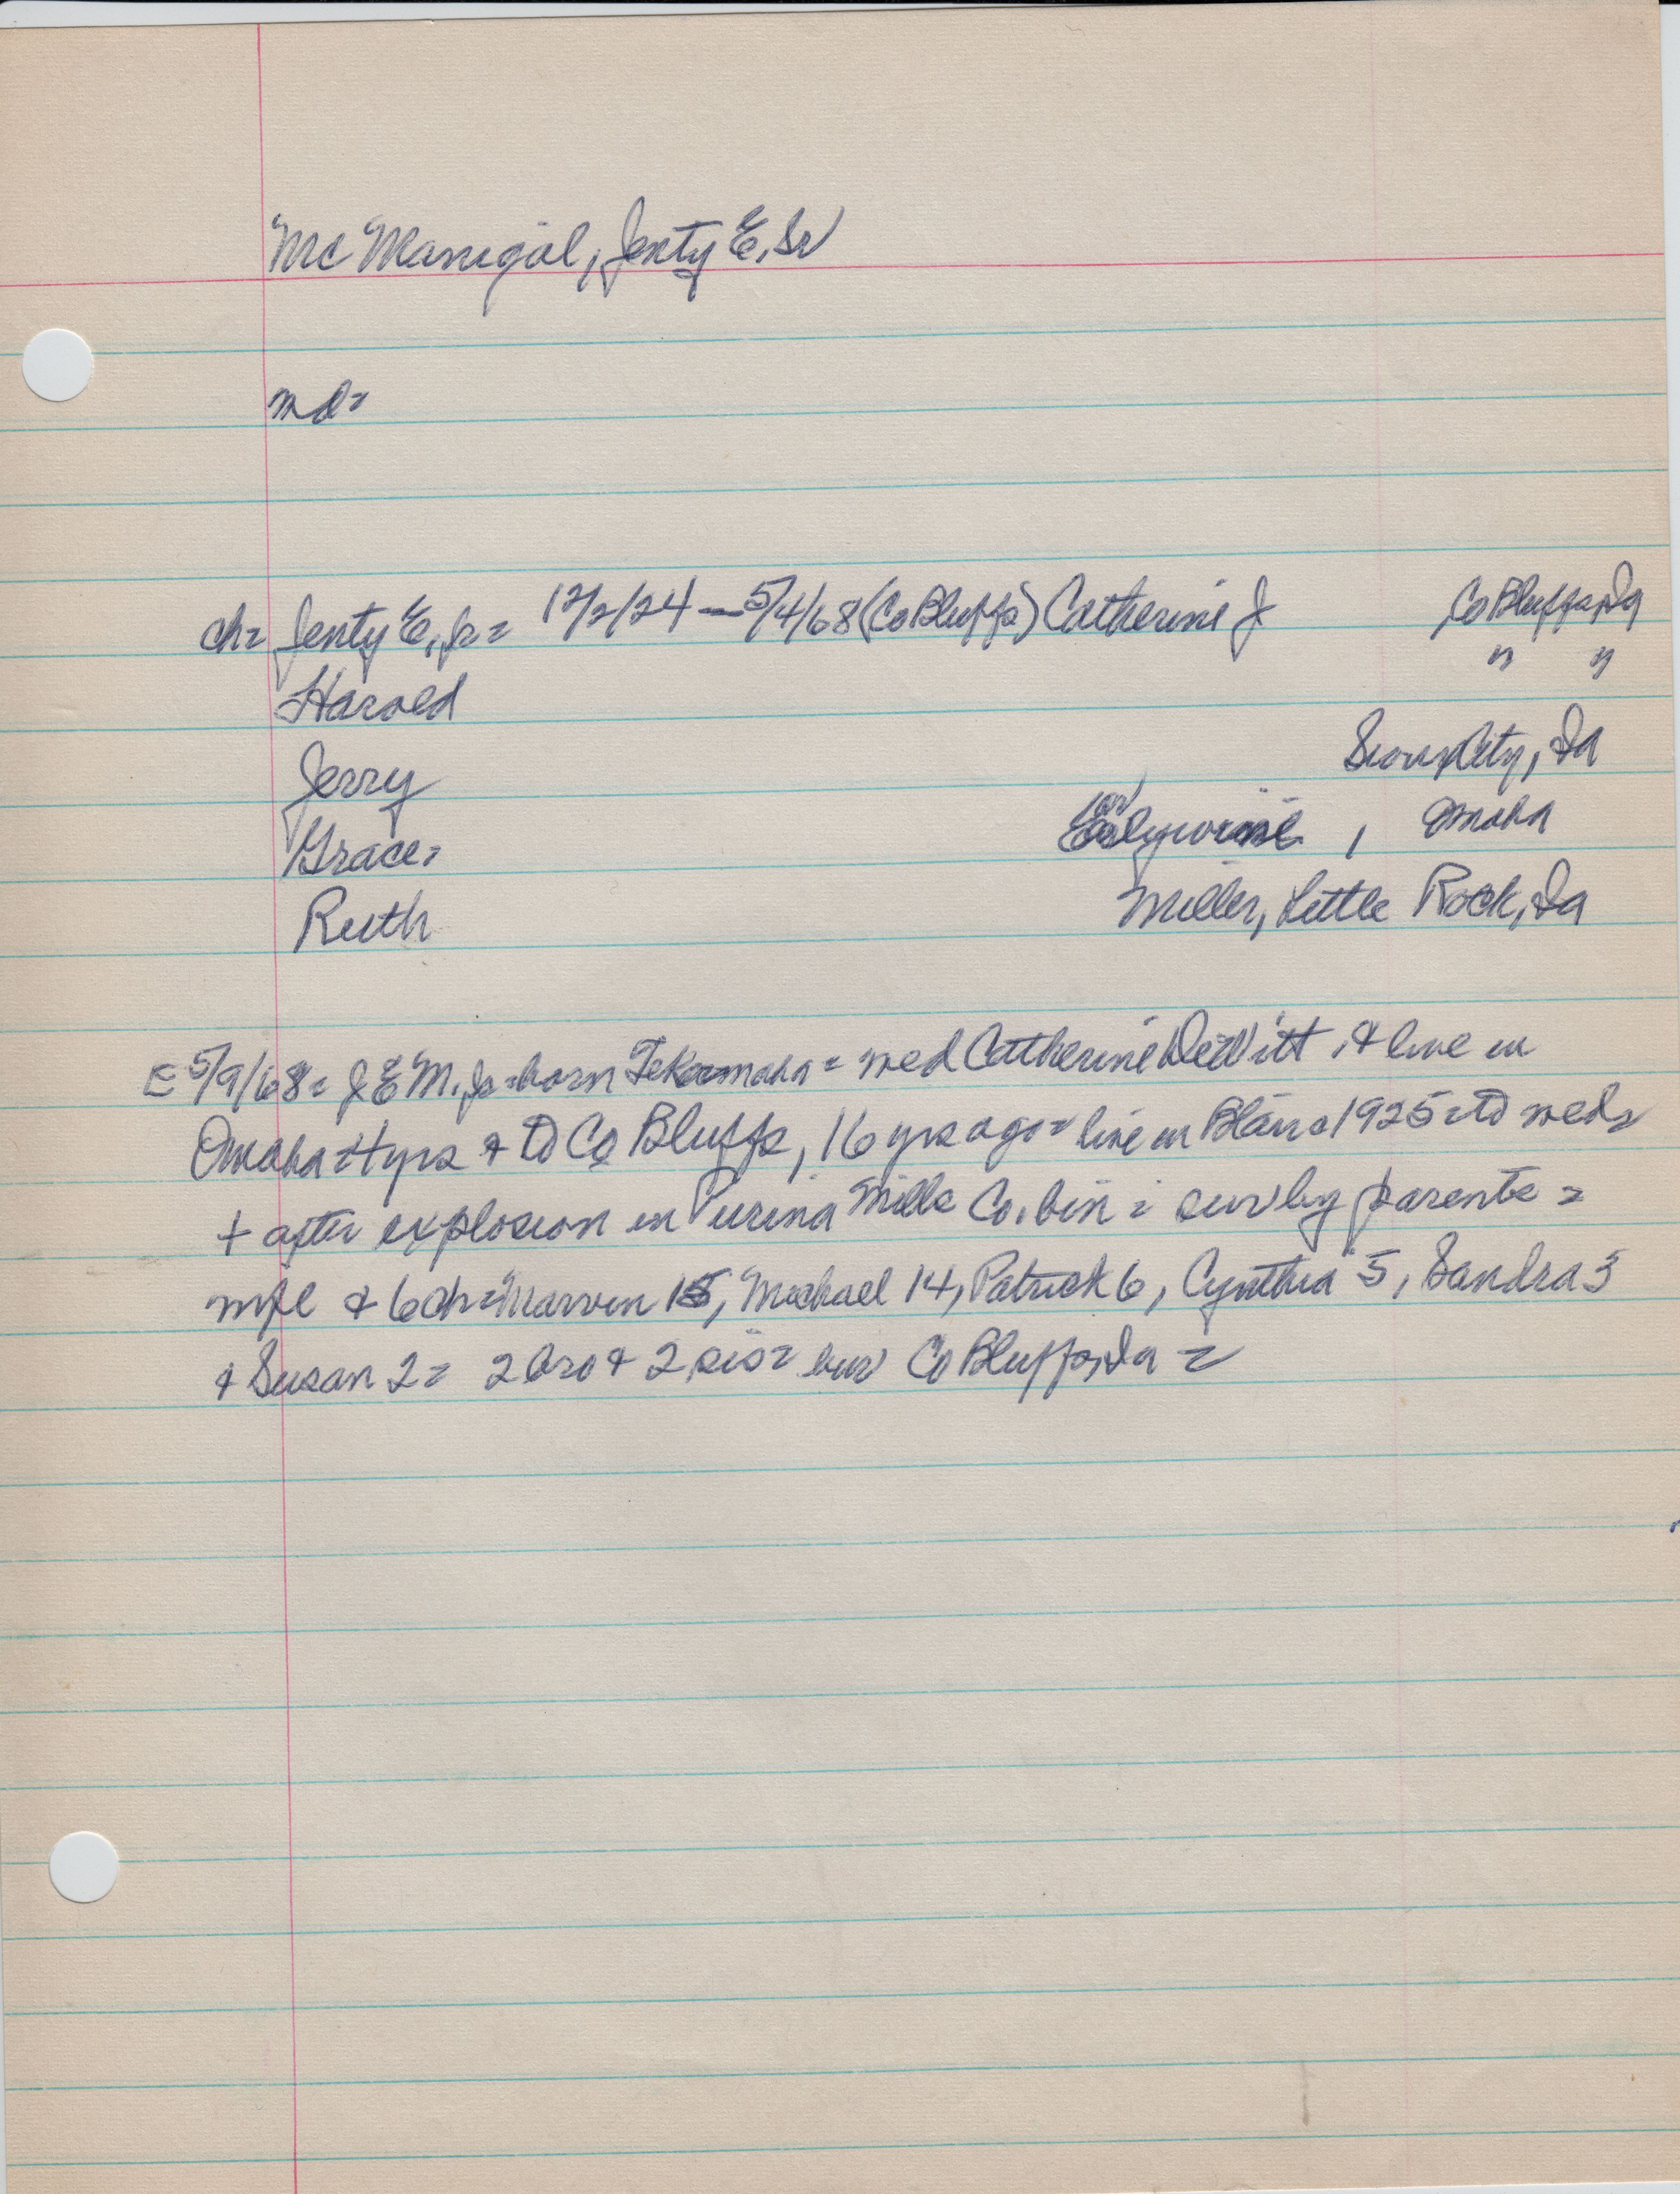 Mc Manigal, Jenty E, Sr
md=
ch= Jenty E, Jr= 12/2/24 — 5/4/68 (Co Bluffs) Catherine J Co Bluffs, Ia
Harold " "
Jerry Sioux City, Ia
Grace= , Omaha
Ruth Miller, Little Rock, Ia
E 5/9/68= J E M. Jr=born Tekamaha= wed Catherine DeWitt, & live in
Omaha 4 yrs & to Co Bluffs, 16 yrs ago= live in Blair 1925 to wed=
+ after explosion in Purina Mills Co. bin= surv by parents=
mpl & 6 ch= Marvin 15, Michael 14, Patrick 6, Cynthia 5, Sandra 3
& Susan 2= 2 bro & 2 sis= bur Co Bluffs, Ia=